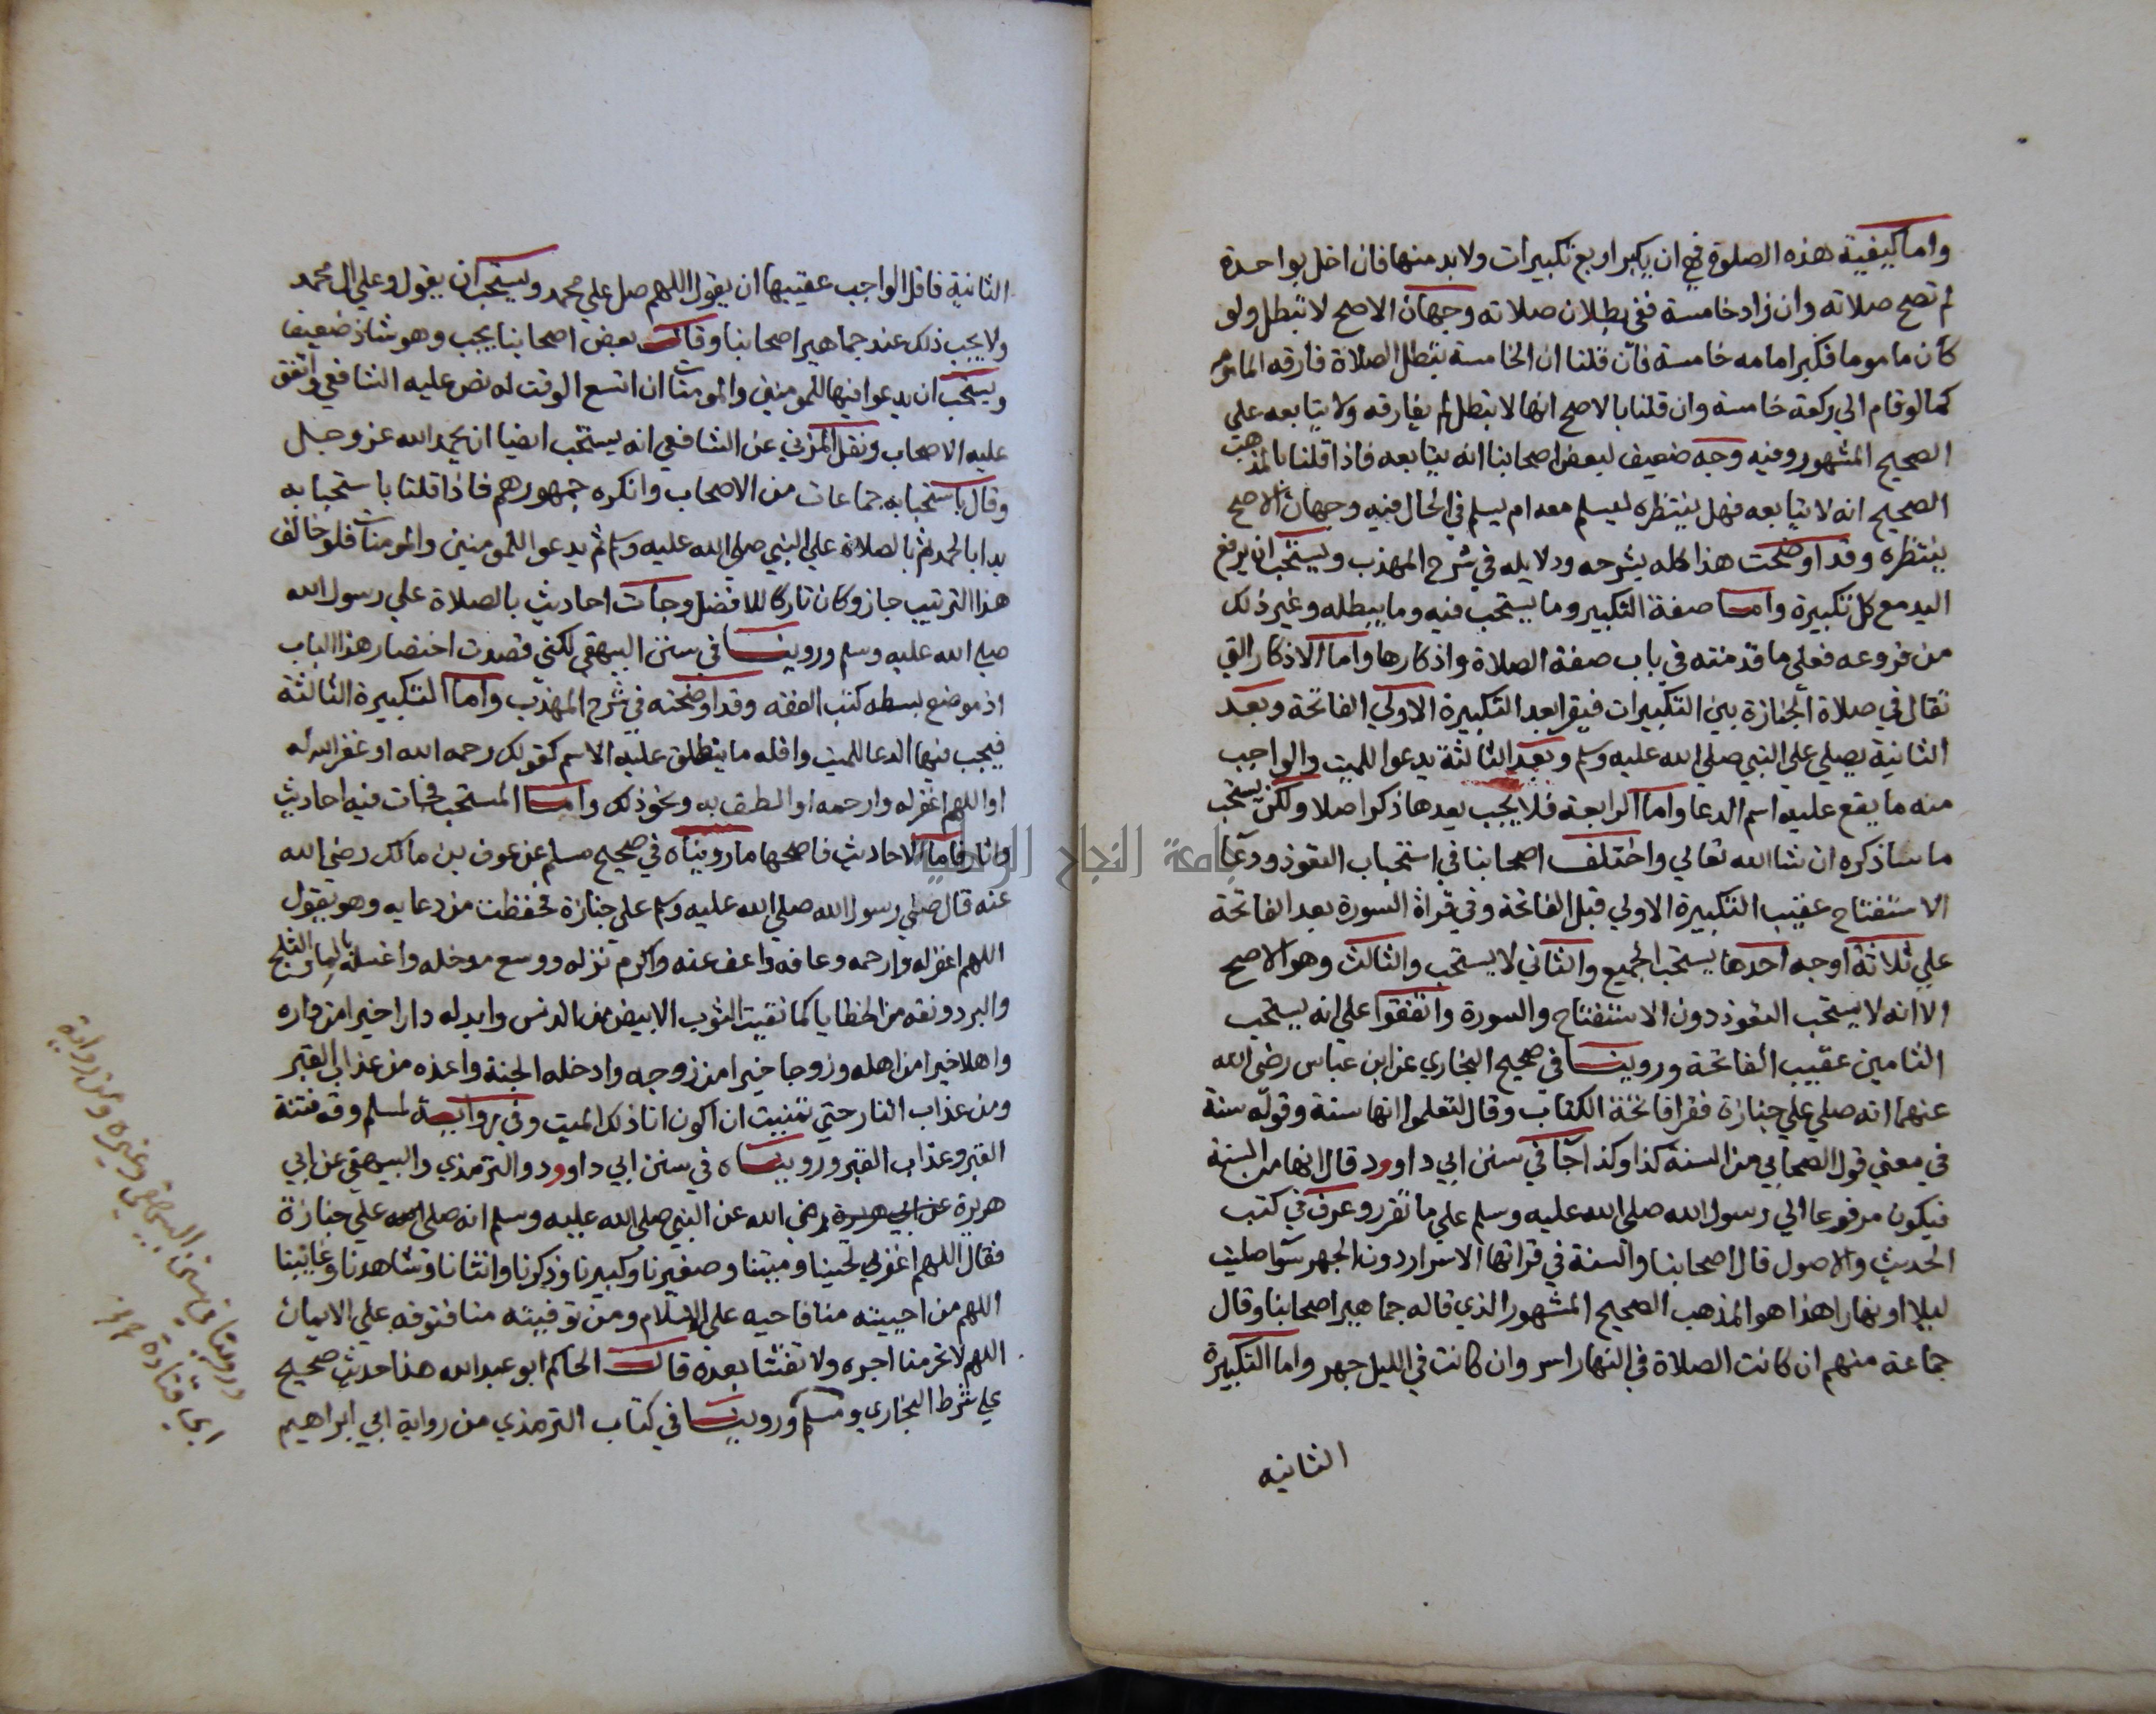 واما كيفية هذه الصلوة فهي ان يكبر اربع تكبيرات ولا بد منها فان اخل بواحدة
لم تصح صلاته وان زاد خامسة ففي بطلان صلاته وجهان الاصح لا تبطل ولو
كان ماموما فكبر امامه خامسة فان قلنا ان الخامسة تبطل الصلاة فارقه الماموم
كما لو قام الي ركعة خامسة وان قلنا بالاصح انها لا تبطل لم يفارقه ولا يتابعه علي
الصحيح المشهور وفيه وجه ضعيف لبعض اصحابنا انه يتابعه فاذا قلنا بالمذهب
الصحيح انه لا يتابعه فهل ينتظره ليسلم معه ام يسلم في الحال فيه وجهان الاصح
ينتظره وقد اوضحت هذا كله بشرحه ودلايله في شرح المهذب ويستحب ان يرفع
اليد مع كل تكبيرة واما صفة التكبير وما يستحب فيه وما يبطله وغير ذلك
من فروعه فعلي ما قدمته في باب صفة الصلاة واذكارها واما الاذكار التي
تقال في صلاة الجنازة بين التكبيرات فيقرا بعد التكبيرة الاولي الفاتحة وبعد
الثانية يصلي علي النبي صلي الله عليه وسلم وبعد الثالثة يدعوا للميت والواجب
منه ما يقع عليه اسم الدعا واما الرابعة فلا يجب بعدها ذكر اصلا ولكن يستحب
ما ساذكره ان شا الله تعالي واختلف اصحابنا في استحباب التعوذ ودعا
الاستفتاح عقيب التكبيرة الاولي قبل الفاتحة وفي قراة السورة بعد الفاتحة
علي ثلاثة اوجه احدها يستحب الجميع والثاني لا يستحب والثالث وهو الاصح
الا انه لا يستحب التعوذ دون الاستفتاح والسورة واتفقوا علي انه يستحب
التامين عقيب الفاتحة وروينا في صحيح البخاري عن ابن عباس رضي الله
عنهما انه صلي علي جنازة فقرا فاتحة الكتاب وقال لتعلموا انها سنة وقوله سنة
في معني قول الصحابي من السنة كذا وكذا جا في سنن ابي داوود قال انها من السنة
فيكون مرفوعا الي رسول الله صلي الله عليه وسلم علي ما تقرر وعرف في كتب
الحديث والاصول قال اصحابنا والسنة في قراتها الاسرار دون الجهر سوا صليت
ليلا او نهارا هذا هو المذهب الصحيح المشهور الذي قاله جماهير اصحابنا وقال
جماعة منهم ان كانت الصلاة في النهار اسر وان كانت في الليل جهر واما التكبيرة
الثانيه
الثانية فاقل الواجب عقيبها ان يقول اللهم صل علي محمد ويستحب ان يقول وعلي ال محمد
ولا يجب ذلك عند جماهير اصحابنا وقال بعض اصحابنا يجب وهو شاذ ضعيف
ويستحب ان يدعوا فيها للمومنين والمومنات ان اتسع الوقت له نص عليه الشافعي واتفق
عليه الاصحاب ونقل المزني عن الشافعي انه يستحب ايضا ان يحمد الله عز وجل
وقال باستحبابه جماعات من الاصحاب وانكره جمهورهم فاذا قلنا باستحبابه
بدا بالحمد ثم بالصلاة علي النبي صلي الله عليه وسلم ثم يدعو للمومنين والمومنات فلو خالف
هذا الترتيب جاز وكان تاركا للافضل وجات احاديث بالصلاة علي رسول الله
صلي الله عليه وسلم وروينا في سنن البيهقي لكني قصدت اختصار هذا الباب
اذ موضع بسطه كتب الفقه وقد اوضحته في شرح المهذب واما التكبيرة الثالثة
فيجب فيها الدعا للميت واقله ما ينطلق عليه الاسم كقولك رحمه الله او غفر الله له
او اللهم اغفر له وارحمه او الطف به ونحو ذلك واما المستحب فجات فيه احاديث
واثار فاما الاحاديث فاصحها ما رويناه في صحيح مسلم عن عوف بن مالك رضي الله
عنه قال صلي رسول الله صلي الله عليه وسلم علي جنازة فحفظت من دعايه وهو يقول
اللهم اغفر له وارحمه وعافه واعف عنه واكرم نزله ووسع مدخله واغسله بالما والثلج
والبرد ونقه من الخطايا كما نقيت الثوب الابيض من الدنس وابدله دارا خيرا من داره
واهلا خيرا من اهله وزوجا خيرا من زوجه وادخله الجنة واعذه من عذاب القبر
ومن عذاب النار حتي تمنيت ان اكون انا ذلك الميت وفي رواية لمسلم وقه فتنة
القبر وعذاب القبر وروينا ه في سنن ابي داوود والترمذي والبيهقي عن ابي
هريرة عن ابي هريرة رضي الله عن النبي صلي الله عليه وسلم انه صلي علي جنازة
فقال اللهم اغفر لحينا وميتنا وصغيرنا وكبيرنا وذكرنا وانثانا وشاهدنا وغايبنا
اللهم من احييته منا فاحيه علي الاسلام ومن توفيته منا فتوفه علي الايمان
اللهم لا تحرمنا اجره ولا تفتنا بعده قال الحاكم ابو عبد الله هذا حديث صحيح
علي شرط البخاري ومسلم وروينا في كتاب الترمذي من رواية ابي ابراهيم
ورويناه في سنن البيهقي وغيره من رواية
ابي قتادة
جامعة النجاح الوطنية